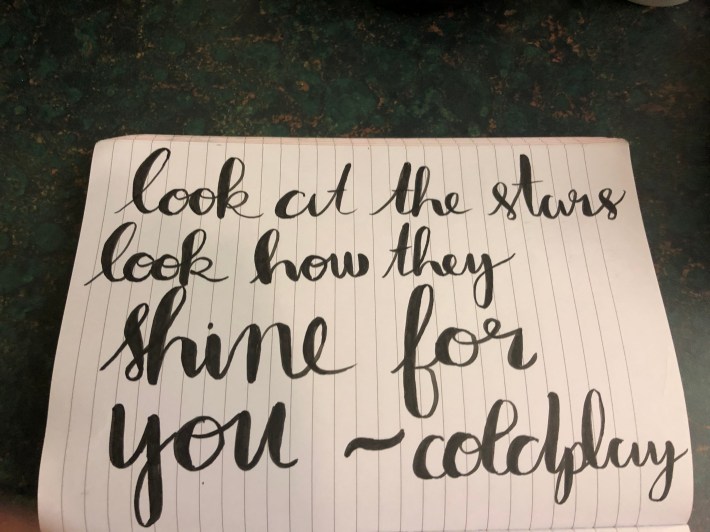 look at the stars
look how they
shine for
you ~coldplay